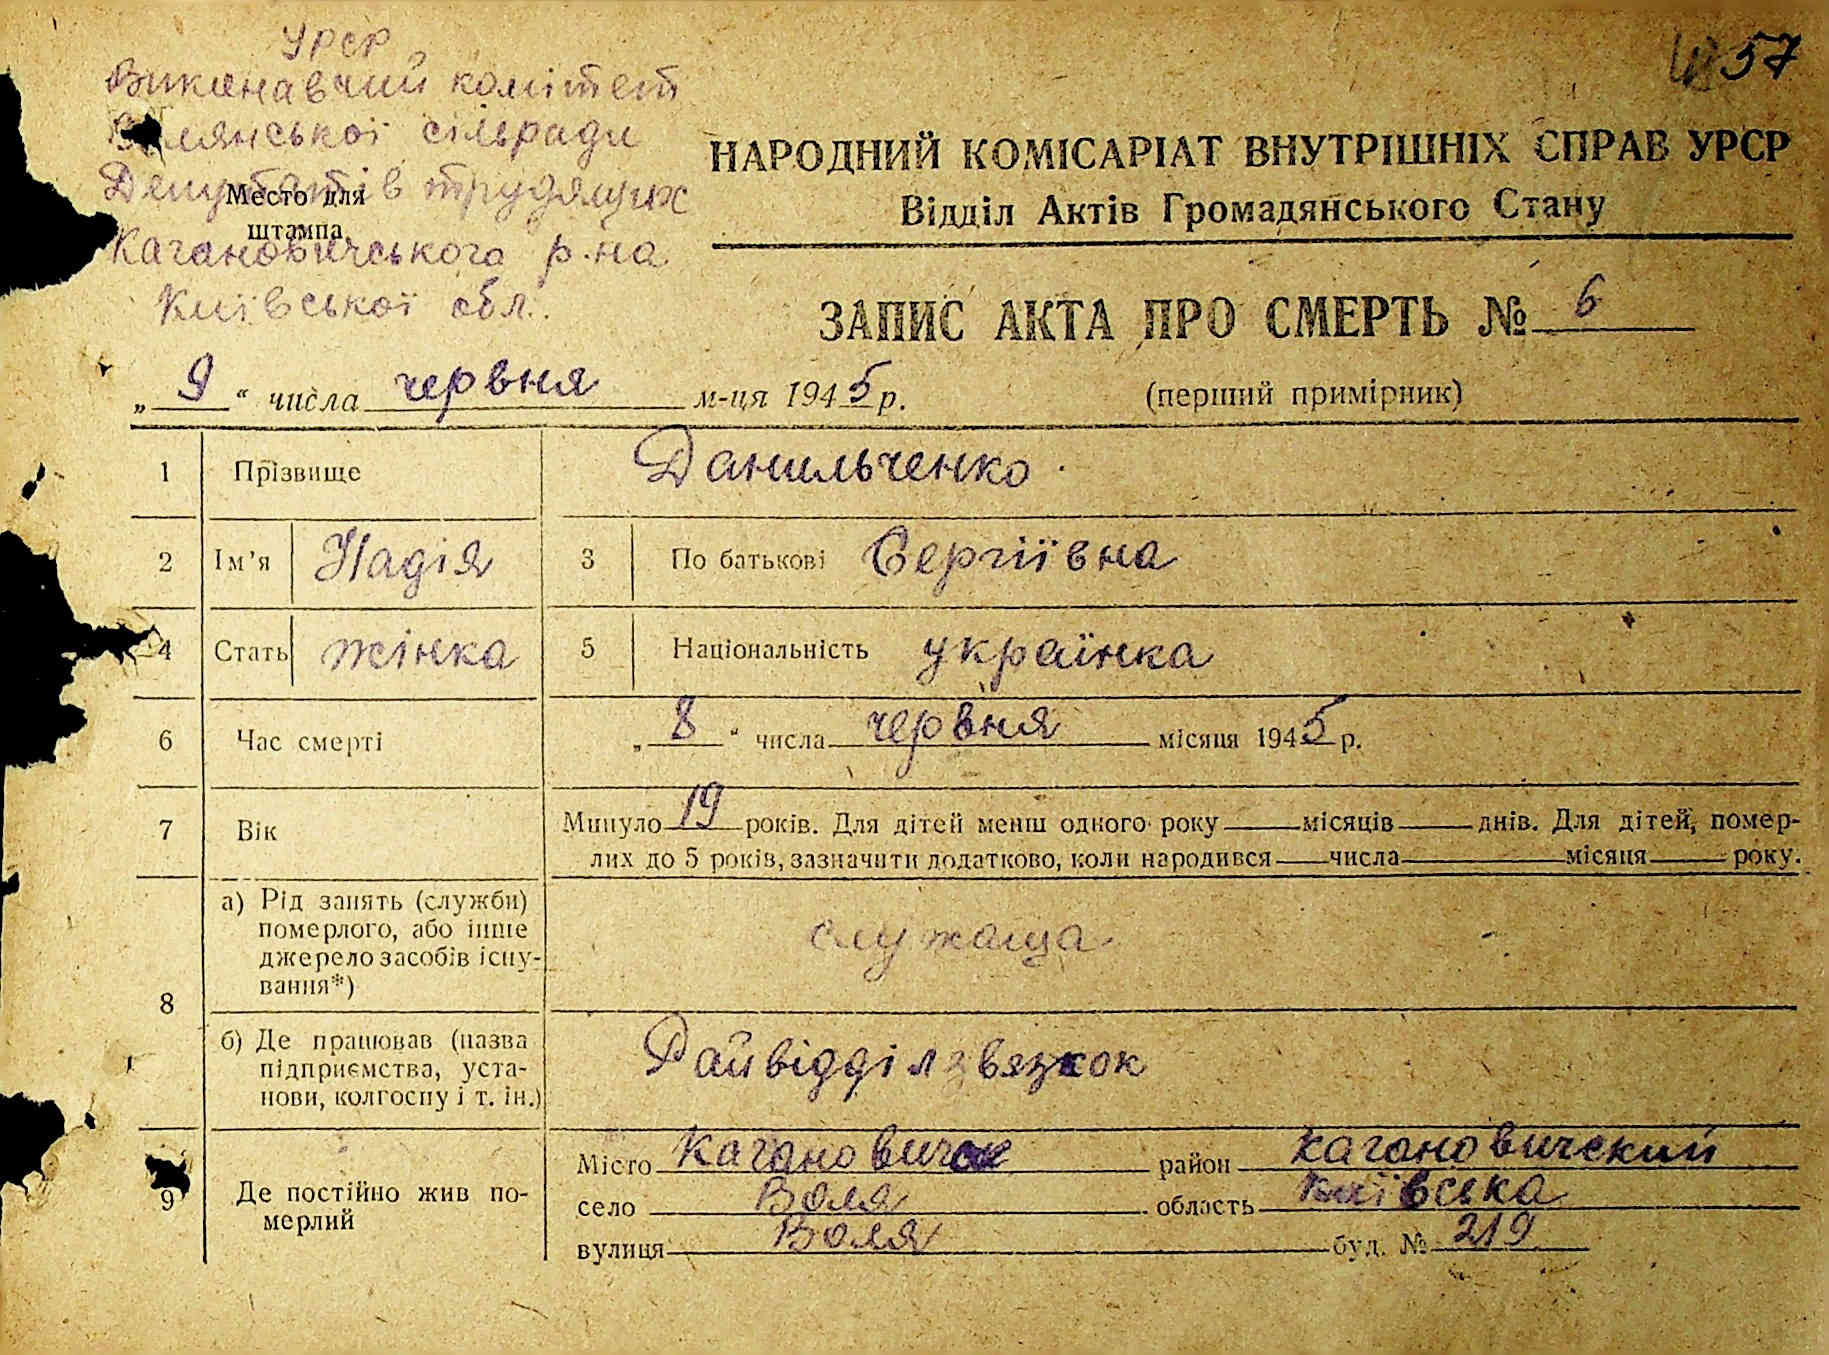 УРСР
Виконавчий комітет
сільради
Депутатів трудящих
Место для
штампа
Кагановичського р-на
Київської обл.
57
НАРОДНИЙ КОМІСАРІАТ ВНУТРІШНІХ СПРАВ УРСР
Відділ Актів Громадянського Стану
ЗАПИС АКТА ПРО СМЕРТЬ № 6
„ 9 “ числа червня м-ця 1945 р. (перший примірник)
1 Прізвище Данильченко
2 Ім'я Надія 3 По батькові Сергіївна
4 Стать жінка 5 Національність українка
6 Час смерті „ 8 “ числа червня місяця 1945 р.
7 Вік Минуло 19 років. Для дітей менш одного року місяців днів. Для дітей, помер-
лих до 5 років, зазначити додатково, коли народився числа місяця року.
8 а) Рід занять (служби)
померлого, або інше
джерело засобів існу-
вання*)
служаща
б) Де працював (назва
підприємства, уста-
нови, колгоспу і т. ін.)
Райвідділ
9 Де постійно жив по-
мерлий
Місто район кагановичский
село Воля область київська
вулиця Воля буд. № 219